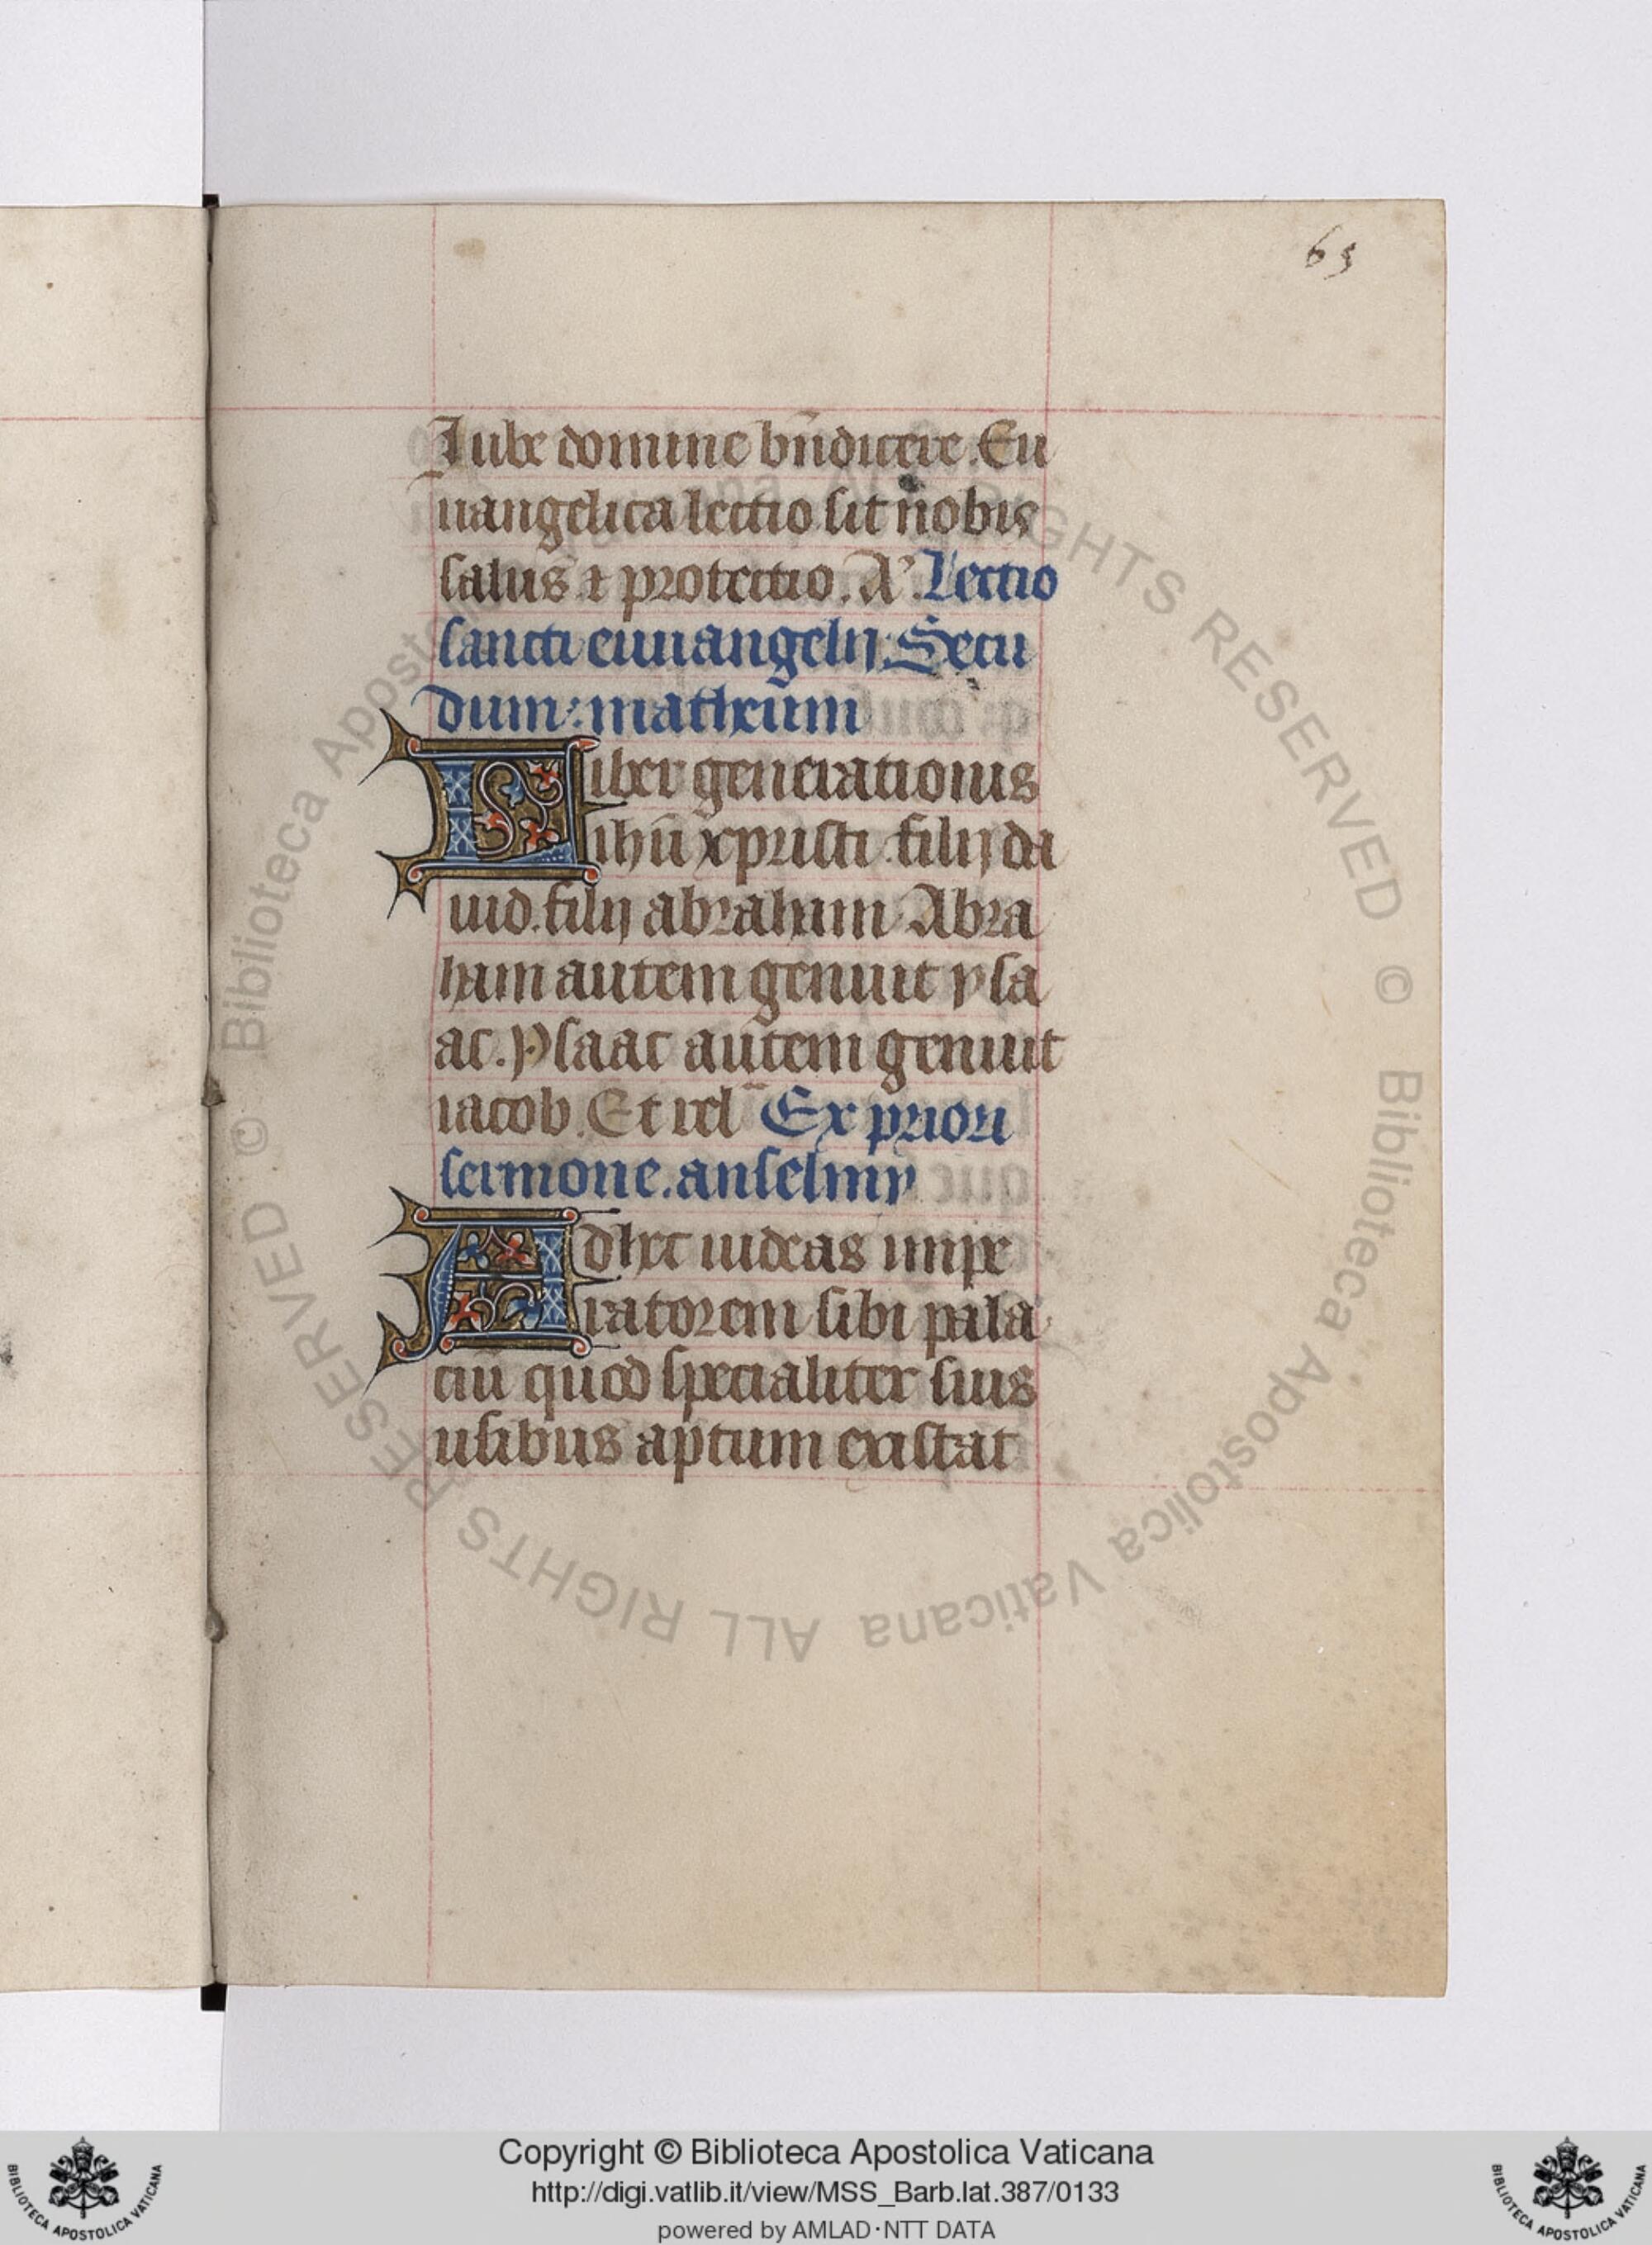 65
Iube domine bn̄dicere. Eu
uangelica lectio sit nobis
salus ⁊ protectio. A'. Lectio
sancti euuangelij: Secu
dum: matheum
Liber generationis
ihū xpristi filij da
uid. filij abraham Abra
ham autem genuit ysa
ac. Ysaac autem genuit
iacob. Et rel̄ Ex priori
sermone. anselmy
Adhec iudeas impe
ratorem sibi pala
ciū quod specialiter suis
usibus aptum existat
© Biblioteca Apostolica Vaticana ALL RIGHTS RESERVED © Biblioteca Apostolica Vaticana ALL RIGHTS RESERVED
Copyright © Biblioteca Apostolica Vaticana
http://digi.vatlib.it/view/MSS_Barb.lat.387/0133
powered by AMLAD·NTT DATA
BIBLIOTECA APOSTOLICA VATICANA
BIBLIOTECA APOSTOLICA VATICANA